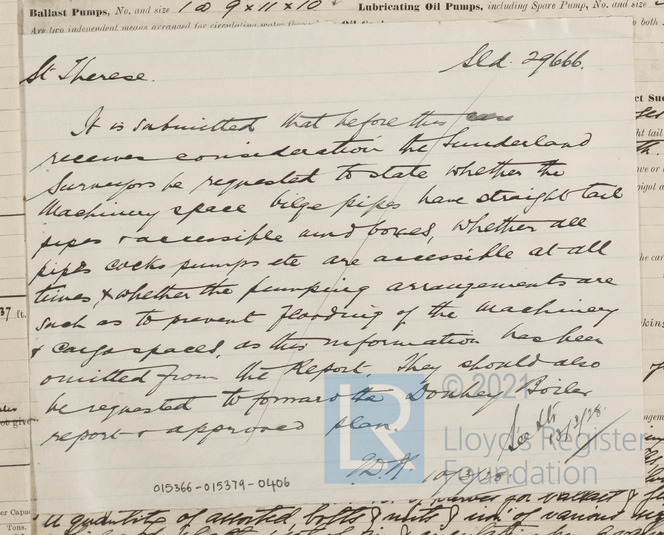 Ballast Pumps, No. and size 1 @ 9 x 11 x 10
Lubricating Oil Pumps, including Spare Pump, No. and size
Are two independent means arranged for circulating water
St Therese.
Sld. 29666.
It is submitted that before this case
receives consideration the Sunderland
Surveyors be requested to state whether the
Machinery space bilge pipes have straight tail
pipes & accessible mud boxes, whether all
pipes cocks pumps etc are accessible at all
times, & whether the pumping arrangements are
such as to prevent flooding of the Machinery
& cargo spaces, as this information has been
omitted from the Report. They should also
be requested to forward the Donkey Boiler
report & approved plan.
10/3/28
015366-015379-0406
LR
© 2021
Lloyd's Register
Foundation
37 ft.
Tons.
quantity of assorted bolts & nuts & iron of various